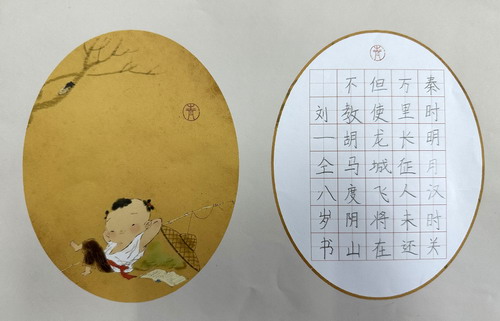 秦时明月汉时关
万里长征人未还
但使龙城飞将在
不教胡马度阴山
刘一仝八岁书